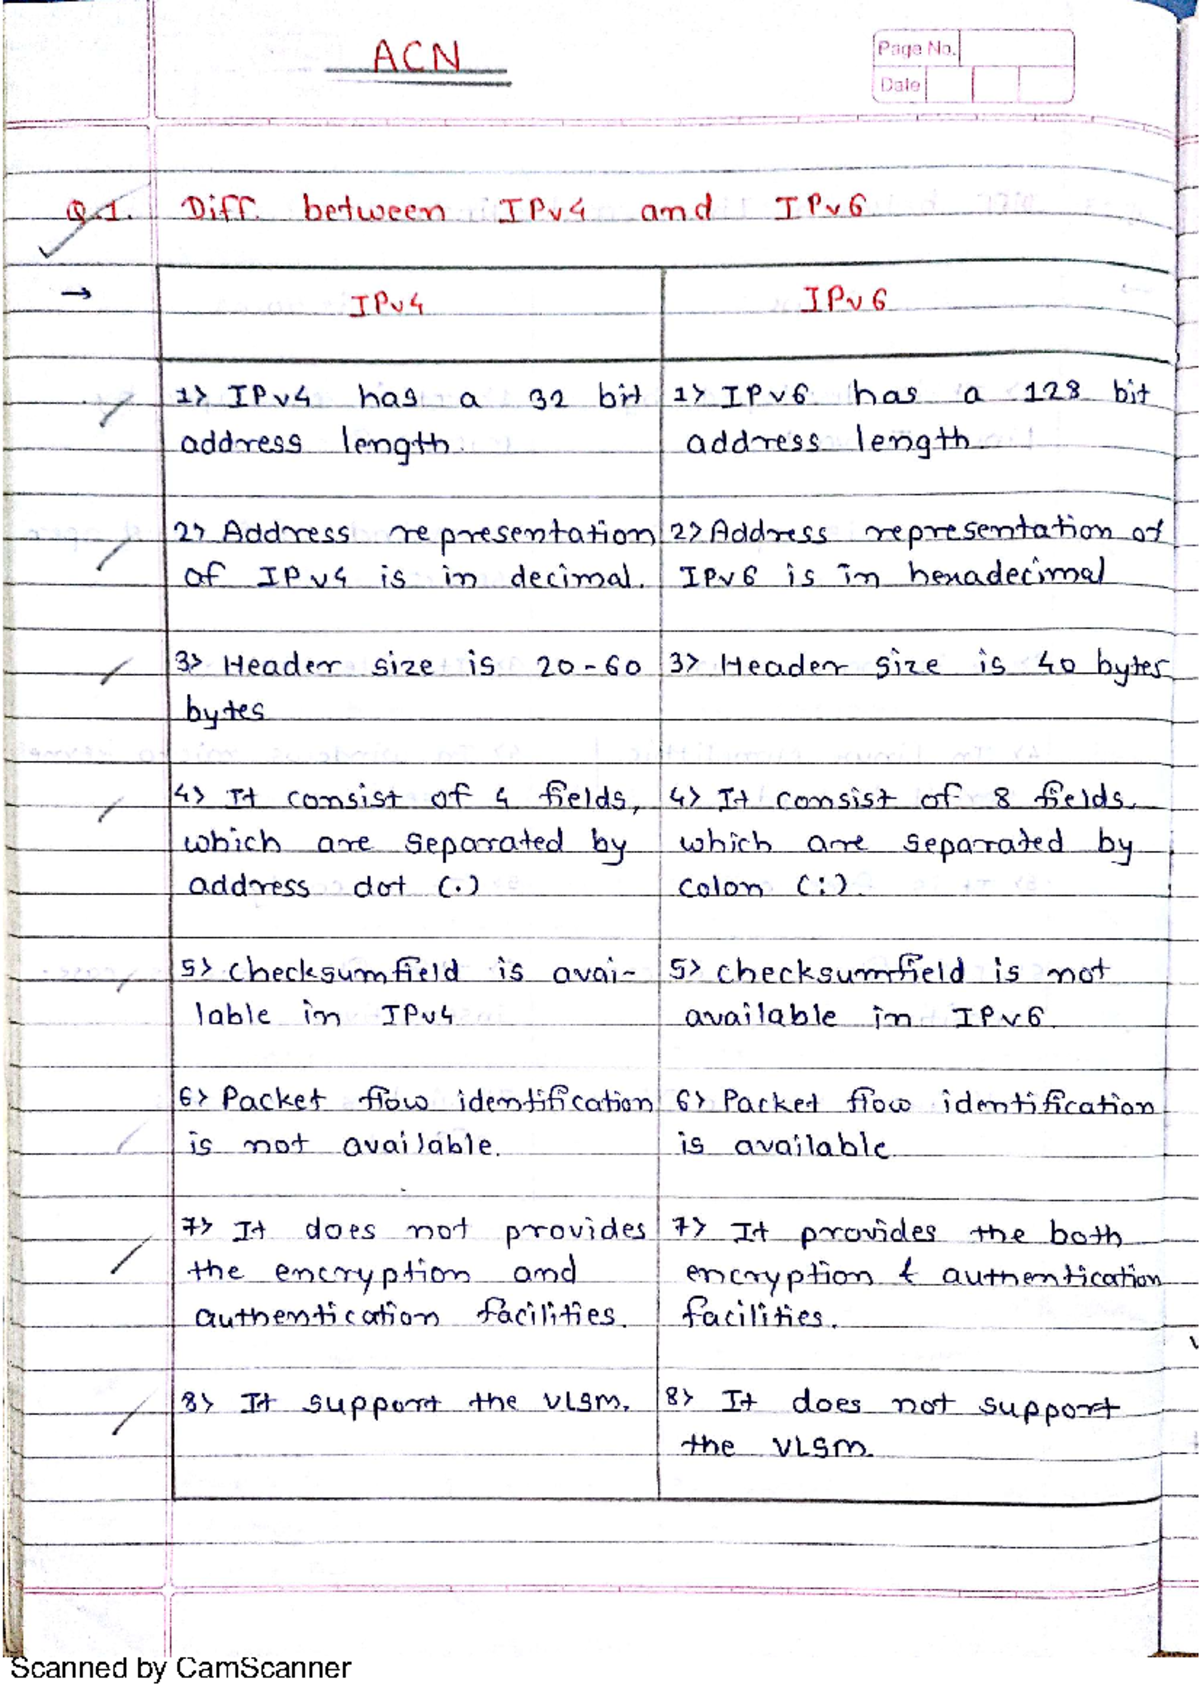 ACN
Page No.
Date
Q.1. Diff. between IPv4 and IPv6
→ IPv4
IPv6
1> IPv4 has a 32 bit
address length.
1> IPv6 has a 128 bit
address length
2> Address representation
of IPv4 is in decimal.
2> Address representation of
IPv6 is in hexadecimal
3> Header size is 20-60
bytes
3> Header size is 40 bytes
4> It consist of 4 fields,
which are separated by
address dot (.)
4> It consist of 8 fields,
which are separated by
colon (:).
5> checksumfield is avai-
lable in IPv4
5> checksumfield is not
available in IPv6.
6> Packet flow identification
is not available.
6> Packet flow identification
is available
7> It does not provides
the encryption and
authentication facilities.
7> It provides the both
encryption & authentication
facilities.
8> It support the VLSM.
8> It does not support
the VLSM.
Scanned by CamScanner